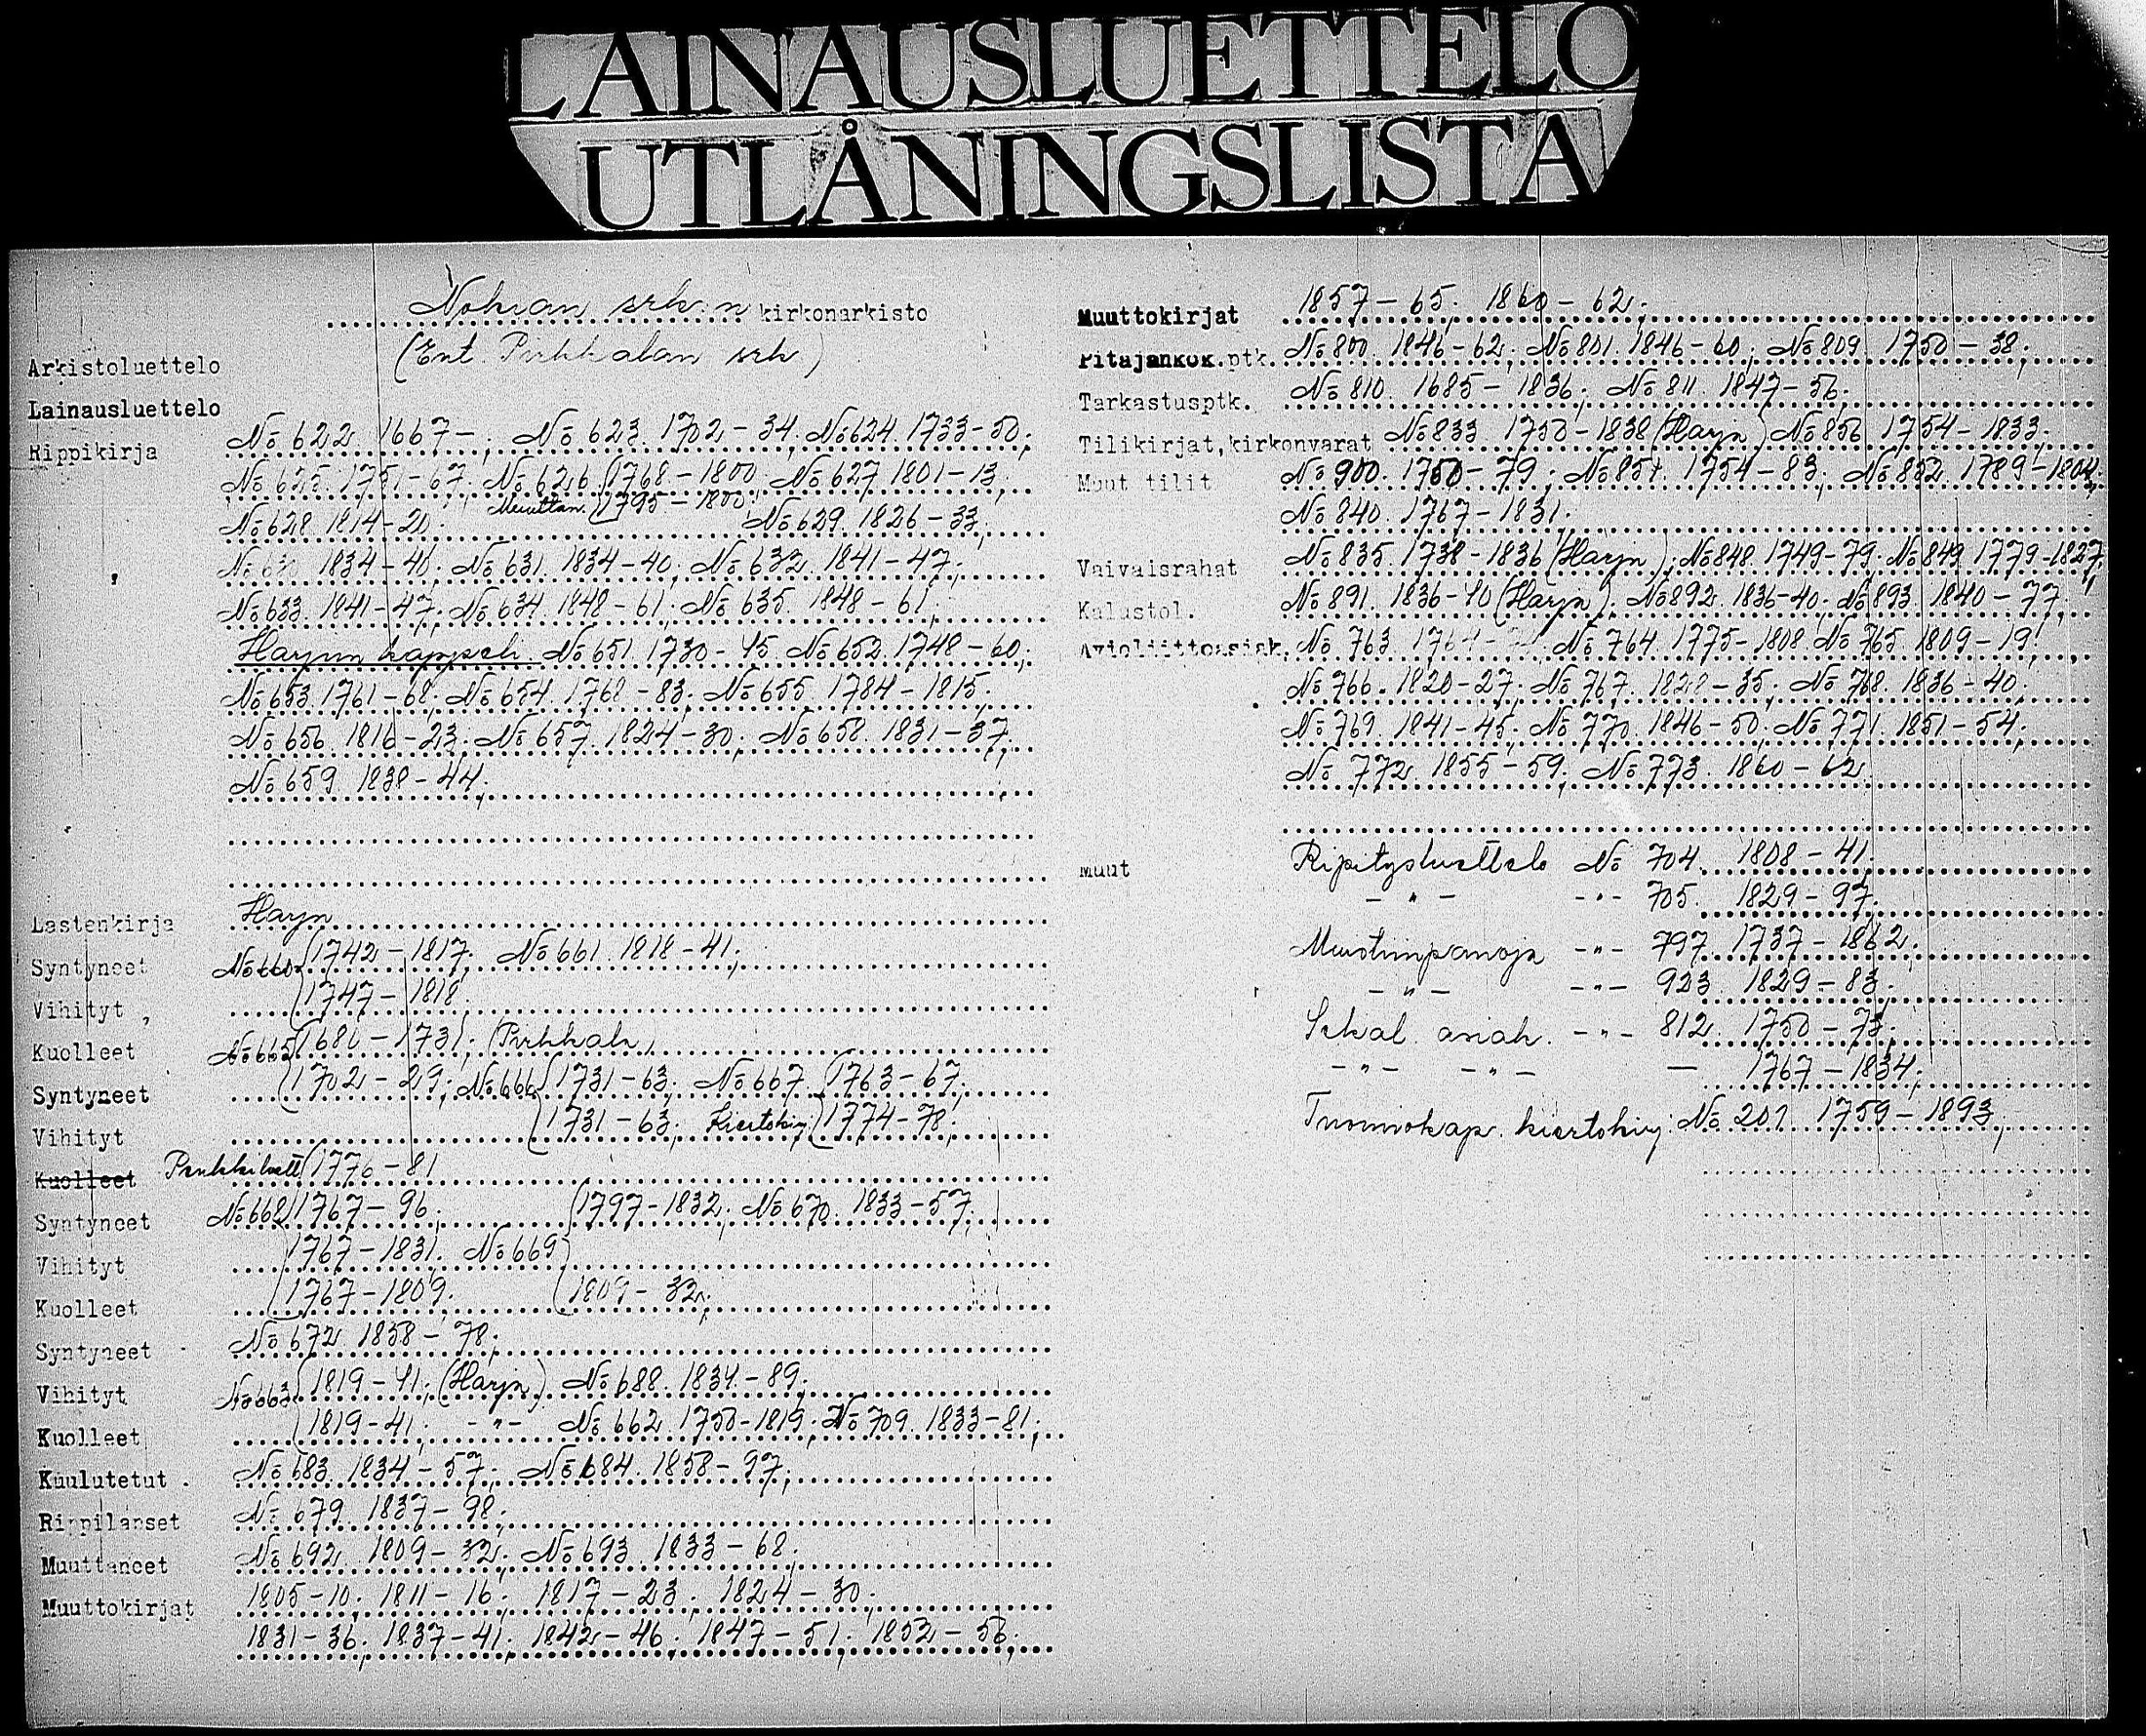 LAINAUSLUETTELO
UTLÅNINGSLISTA
Nokian srk:n kirkonarkisto
(Ent. Pirkkalan srk)
Arkistoluettelo
Lainausluettelo
Rippikirja No 622. 1667-; No 623. 1702-34; No 624. 1733-50;
No 625. 1751-67. No 626. 1768-1800. No 627 1801-13.
Muuttan. 1795-1800;
No 628. 1814-20. No 629. 1826-33;
1834-40. No 631. 1834-40; No 632. 1841-47;
No 633. 1841-47; No 634. 1848-61; No 635. 1848-61;
Harjun kappeli. No 651. 1730-45. No 652. 1748-60;
No 653. 1761-68; No 654. 1768-83; No 655. 1784-1815;
No 656. 1816-23. No 657. 1824-30; No 658. 1831-37;
No 659. 1838-44;
Lastenkirja Harjn
Syntyneet No 660. 1742-1817. No 661. 1818-41;
Vihityt 1747-1818.
Kuolleet No 665 1686-1731; (Pirkkala)
Syntyneet 1702-29; No 666 1731-63; No 667 1763-67;
Vihityt 1731-63; Kiertokirj. 1774-78.
Kuolleet 1776-81
Syntyneet No 668 1767-96. 1797-1832; No 670. 1833-57.
Vihityt 1767-1831. No 669
Kuolleet 1767-1809. 1809-32;
Syntyneet No 672 1858-78;
Vihityt No 663 1819-41; (Harjn) No 688. 1834-89;
Kuolleet 1819-41; -"- No 662. 1750-1819; No 709. 1833-81;
Kuulutetut No 683. 1834-57; No 684. 1858-97;
Rippilapset No 679. 1837-98;
Muuttaneet No 692. 1809-32; No 693. 1833-68;
Muuttokirjat 1805-10; 1811-16; 1817-23; 1824-30;
1831-36; 1837-41; 1842-46; 1847-51; 1852-56;
Muuttokirjat 1857-65; 1860-62;
Pitäjänkok.ptk. No 800. 1846-62; No 801. 1846-60; No 809. 1750-38;
Tarkastusptk. No 810. 1685-1836; No 811. 1847-56;
Tilikirjat,kirkonvarat No 833 1750-1838 (Harjn) No 856 1754-1833;
Muut tilit No 900. 1750-79; No 851. 1754-83; No 852. 1789-1804;
No 840. 1767-1831;
Vaivaisrahat No 835. 1738-1836 (Harjn); No 848. 1749-79. No 849 1779-1827;
Kalustol. No 891. 1836-40 (Harjn). No 892. 1836-40; No 893. 1840-77;
Avioliittoasiak. No 763. No 764. 1775-1808. No 765. 1809-19;
No 766. 1820-27; No 767. 1828-35; No 768. 1836-40;
No 769. 1841-45; No 770. 1846-50; No 771. 1851-54;
No 772. 1855-59; No 773. 1860-62
Muut Ripitysluettelo No 704. 1808-41.
-"- -"- 705. 1829-97.
Muistiinpanoja -"- 797. 1737-1862.
-"- -"- 923. 1829-83.
Sekal. asiak. -"- 812. 1750-73;
-"- -"- — 1767-1834;
Tuomiokap. kiertokirj. No 201. 1759-1893;